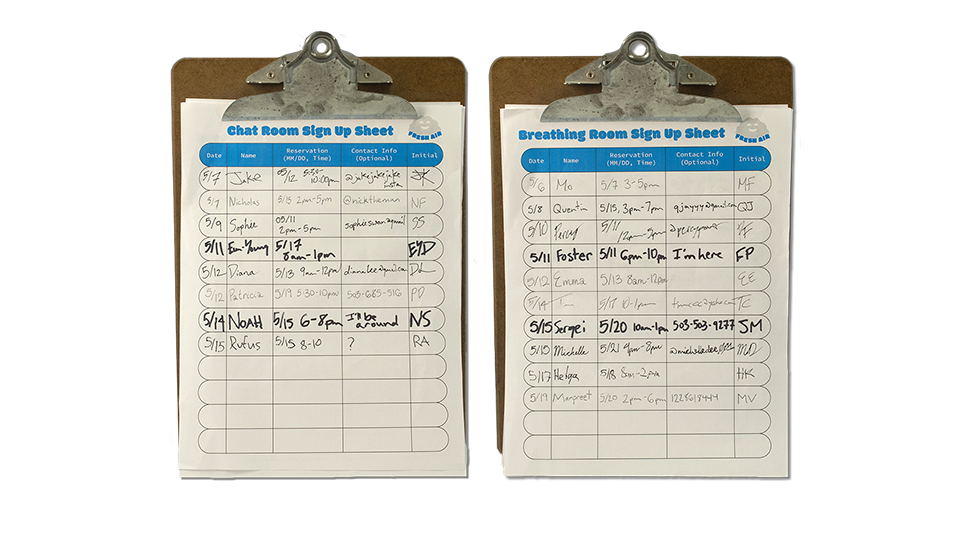 Chat Room Sign Up Sheet
FRESH AIR
Date Name Reservation (MM/DD, Time) Contact Info (Optional) Initial
5/7 Jake 05/12 5:30-10:00pm @jakejakejake insta
5/9 Nicholas 5/13 2pm-5pm @nicktheman NF
5/9 Sophie 05/11 2pm-5pm sophieswan@gmail SS
5/11 Eun-Young 5/17 8am-1pm EYD
5/12 Diana 5/13 9am-12pm dianalee@gmail.com DL
5/12 Patricia 5/19 5:30-10pm 505-685-516 PD
5/14 NOAH 5/15 6-8pm I'll be around NS
5/15 Rufus 5/15 8-10 ? RA
Breathing Room Sign Up Sheet
FRESH AIR
Date Name Reservation (MM/DD, Time) Contact Info (Optional) Initial
5/6 Mo 5/7 3-5pm MF
5/8 Quentin 5/15, 3pm-7pm qjayyy@gmail.com QJ
5/10 Percy 5/11 12pm-3pm
5/11 Foster 5/11 6pm-10pm I'm here FP
5/12 Emma 5/13 8am-12pm EE
5/14 5/17 10-1pm TC
5/15 Sergei 5/20 10am-1pm 503-503-9277 SM
5/15 Michelle 5/21 4pm-8pm MD
5/17 Helga 5/18 8am-2pm HK
5/19 Manpreet 5/20 2pm-6pm 1228618444 MV